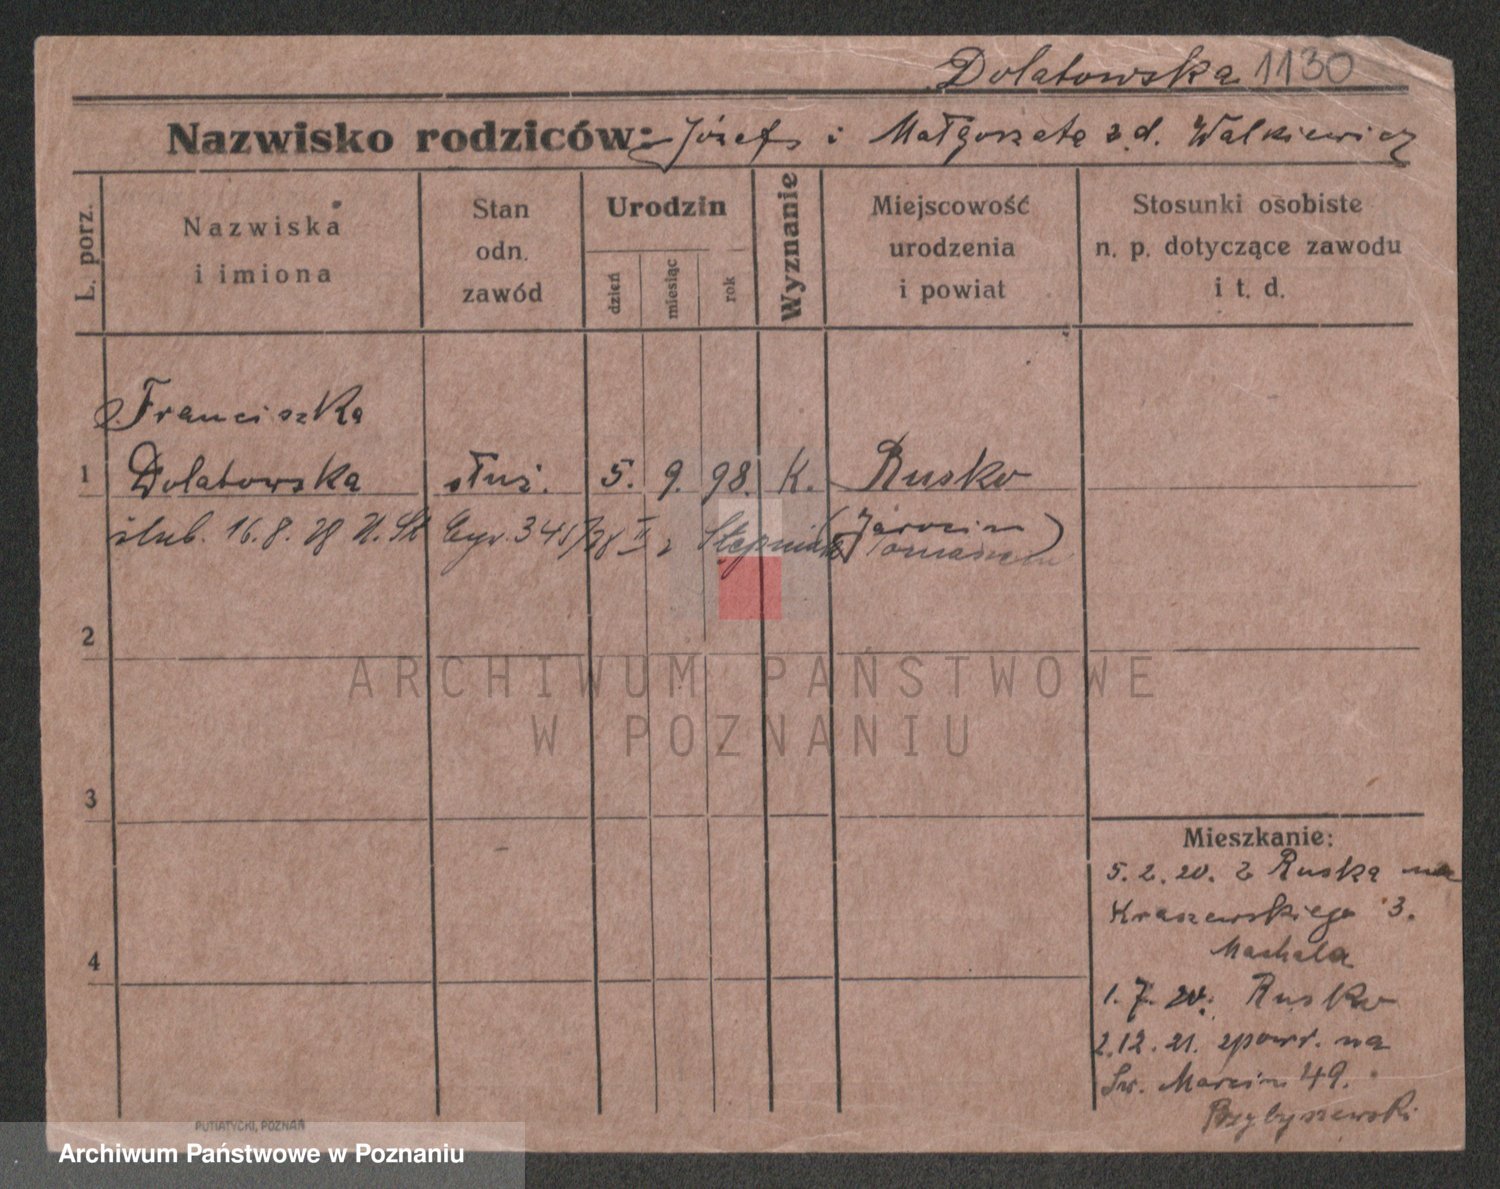 Dolatowska 1130
Nazwisko rodziców: Józef i Małgorzata z d. Walkiewicz
L. porz.
Nazwiska
i imiona
Stan
odn.
zawód
Urodzin
dzień
miesiąc
rok
Wyznanie
Miejscowość
urodzenia
i powiat
Stosunki osobiste
n. p. dotyczące zawodu
i t. d.
Franciszka
1 Dolatowska służ. 5. 9. 98. K. Rusko
(Jarocin)
ślub. 16.8.28 U. St. 345/28 II z Stępniak Tomaszem
2
3
4
ARCHIWUM PAŃSTWOWE
W POZNANIU
Mieszkanie:
5. 2. 20. z Ruska na
Kraszewskiego 3.
Machala
1. 7. 20. Rusko
2.12.21. zpowr. na
Św. Marcin 49.
Przybyszewski
PUTIATYCKI, POZNAŃ
Archiwum Państwowe w Poznaniu